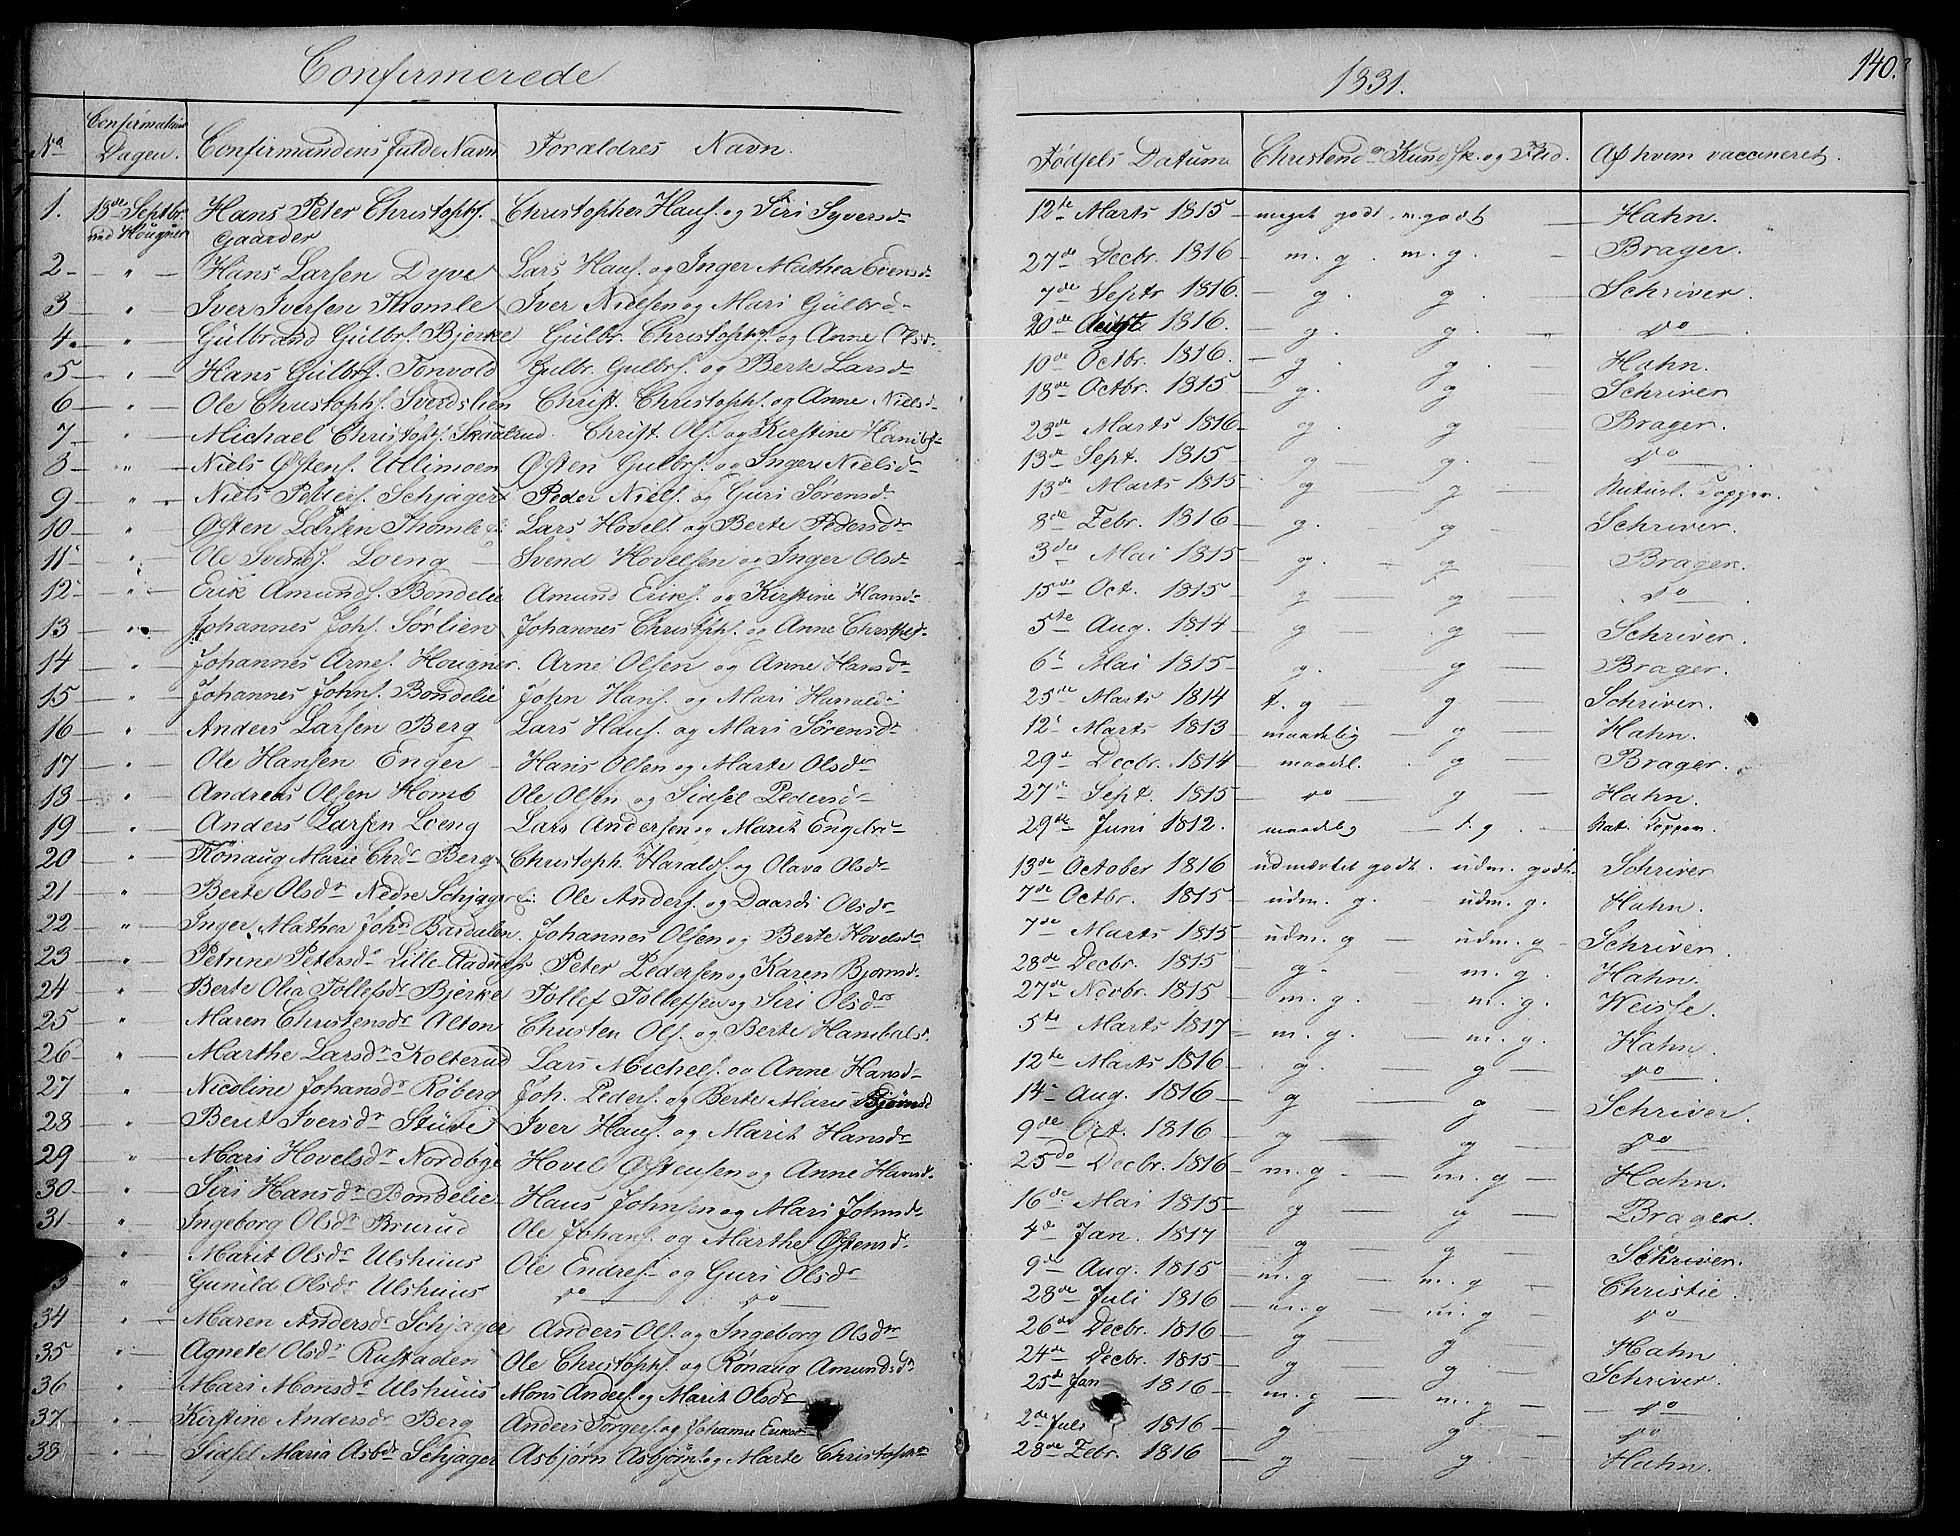 Confirmerede
1831.
140.
No Confirmations Dagen. Confirmandens fulde Navn Forældres Navn. Fødsels Datum Christend. Kundsk. og Flid. Af hvem vaccineret.
1. 18de Septbr. Hans Peter Christophs. Christopher Hans. og Siri Syversdr 12te Marts 1815 meget godt. m. godt Hahn.
ved Hougner Gaarder
2 " Hans Larsen Dyve Lars Hans. og Inger Mathea Evensd 27de Decbr. 1816 m. g. m. g. Brager.
3 " Iver Iversen Thomle Iver Nielsen og Mari Gulbrd 7de Septr 1816. g. g. Schriver.
4. " Gulbrand Gulbrs. Bjerke Gulbr. Christophs. og Anne Olsd. 20de Augt 1816. g. g. do
5 " Hans Gulbrs. Tonvold Gulbr. Gulbrs. og Berte Larsd 10de Octbr. 1816. g g. Hahn.
6 " Ole Christophs. Sverdslien Christ. Christophs. og Anne Nielsd 18de Octbr. 1815 g. g Schriver
7 " Michael Christophs. Christ. Ols. og Kirstine 23de Marts 1816 g. g Brager.
8 " Niels Østens. Ullimoen Østen Gulbrs. og Inger Nielsdr 13de Sept. 1815 g g. do
9 " Niels Peders. Schjager Peder Niels. og Guri Sørensd 13de Marts 1815 g g Naturl. Kopper.
10 " Østen Larsen Thomle Lars Hovels. og Berte Pedersdr 8de Febr. 1816 g. g Schriver.
11 " Ole Svends. Loeng Svend Hovelsen og Inger Olsd 3die Mai 1815 g. g Brager.
12 " Erik Amunds. Bondelie Amund Eriks. og Kirstine Hansd 15de Oct. 1815 g g do
13 " Johannes Joh. Sørlien Johannes Christoph. og Anne 5te Aug. 1814 g g Schriver.
14 " Johannes Arnes. Hougner. Arne Olsen og Anne Hansdr 6t Mai 1815 g. g Brager.
15 " Johannes John. Bondelie John Hans. og Mari 25de Marts 1814 t. g g Schriver.
16 " Anders Larsen Berg Lars Hans. og Mari Sørensdr 12t Marts 1813 maadelig g Hahn.
17 " Ole Hansen Enger Hans Olsen og Marte Olsdr 29t Decbr. 1814 maadel. g Brager.
18 " Andreas Olsen Homb Ole Olsen og Sidsel Pedersd 27de Sept. 1815 do g Hahn.
19 " Anders Larsen Loeng Lars Andersen og Marit Engebr 29de Juni 1812. maadelig t. g. Nat. Kopper.
20 " Rønaug Marie Chrd. Berg Christoph. Haralds. og Olava Olsd 13de October 1816 udmærket godt. udm. godt. Schriver
21 " Berte Olsdr Nedre Schjager Ole Anders. og Daardi Olsdr 7de Octbr. 1815 udm. g. udm. g. Hahn.
22 " Inger Mathea Johd. Bardalen. Johannes Olsen og Berte Hovelsdr 7de Marts 1815 udm. g udm. g Schriver.
23 " Petrine Petersdr Lille Peter Pedersen og Karen Bjørnsd. 28de Decbr. 1815 g. m. g. Hahn.
24 " Berte Olia Tollefsdr Bjerke Tollef Tollefsen og Siri Olsdr 27de Novbr. 1815 m. g. m. g. Weisse.
25 " Maren Christensdr Alton Christen Ols. og Berte Hanibalsd. 5te Marts 1817 m. g. m. g. Hahn
26 " Marthe Larsdr Kolterud Lars Michels. og Anne Hansd 12te Marts 1816 g. g do
27 " Nicoline Johansdr Røberg Joh. Peders. og Berte Marie Bjørnsd 14 Aug. 1816 g g Schriver.
28 " Berit Iversdr Stuve Iver Hans. og Marit Hansdr 9de Oct. 1816 g g do
29 " Mari Hovelsdr Nordbye Hovel Østensen og Anne Hansd. 25do Decbr. 1816 m. g m. g Hahn.
30 " Siri Hansdr Bondelie Hans Johnsen og Mari Johnsd 16de Mai 1815 g g Brager.
31 " Ingeborg Olsdr Brurud Ole Johans. og Marthe Østensd 4de Jan. 1817 g g Schriver.
" Marit Olsdr Ulshuus Ole Endres. og Guri Olsdr 9de Aug. 1815 m. g m. g Christie.
3 " Gunild Olsdr Ulshuus do do 28de Juli 1816 m. g m. g do
34 " Maren Andersdr Schjager Anders Ols. og Ingeborg Olsdr 26de Decbr. 1816 g g Hahn
35 " Agnete Olsdr Rustaden Ole Christophs. og Rønaug Amundsdr 24de Decbr. 1815 g g. Schriver.
36 " Mari Monsdr Ulshuus Mons Anders. og Marit Olsdr 25de Jan 1816 m. g m. g do
37 " Kirstine Andersdr Berg Anders Torgers. og Johanne 2de Juli 1816 g g do
38 " Sidsel Maria Asbdr Schjager Asbjørn Asbjørns. og Marte Christophdr 28de Febr. 1816 g g. Hahn.